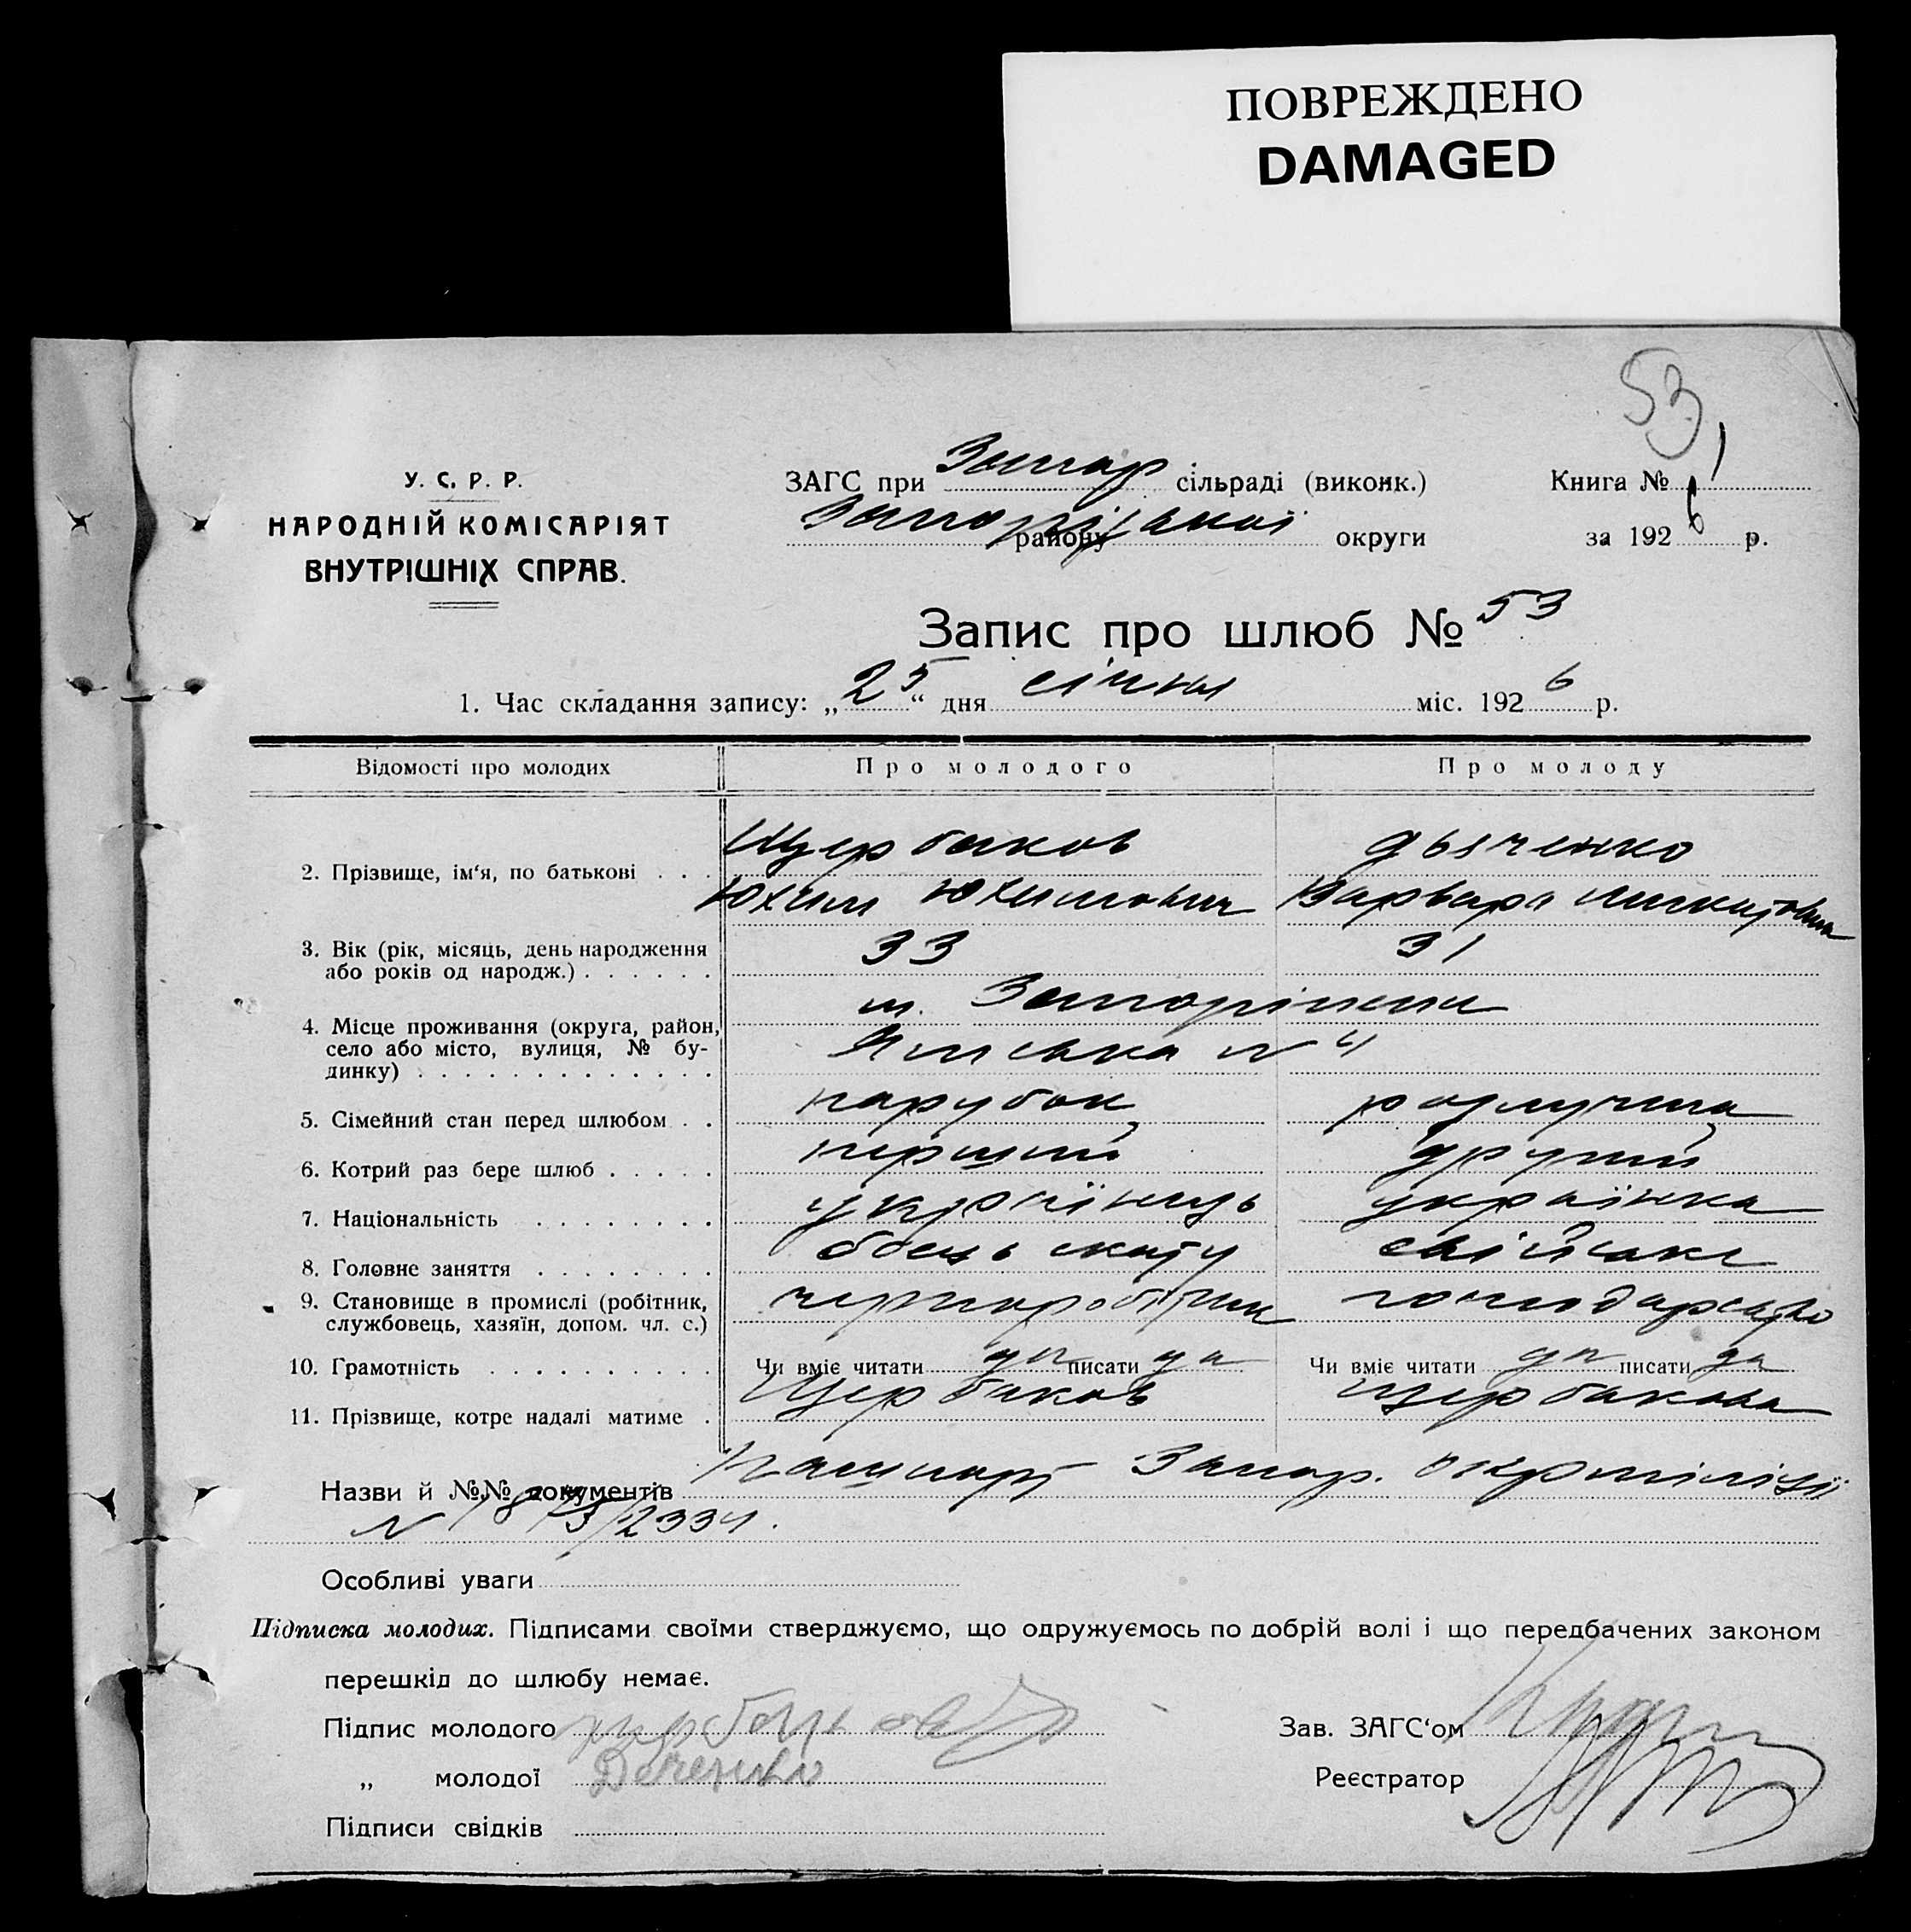 ПОВРЕЖДЕНО
DAMAGED
53
У. С. Р. Р.
НАРОДНІЙ КОМІСАРІЯТ
ВНУТРІШНІХ СПРАВ.
ЗАГС при Запор сільраді (виконк.)
Запорізької району округи
Книга № 1
за 1926 р.
Запис про шлюб № 53
1. Час складання запису: „25“ дня січня міс. 1926 р.
Відомості про молодих Про молодого Про молоду
2. Прізвище, ім'я, по батькові . . . Щербаков Дьяченко
Юхим Юхимович Варвара Микитовна
3. Вік (рік, місяць, день народження
або років од народж.) . . . . . . 33 31
4. Місце проживання (округа, район, м. Запоріжжя
село або місто, вулиця, № бу-
динку) . . . . . . . . . . . . . № 4
5. Сімейний стан перед шлюбом . . парубок розлучена
6. Котрий раз бере шлюб . . . . . перший другий
7. Національність . . . . . . . . українець українка
8. Головне заняття . . . . . . . . боець скоту свійське
9. Становище в промислі (робітник,
службовець, хазяїн, допом. чл. с.) чорноробітник господарство
10. Грамотність . . . . . . . . . . Чи вміє читати да писати да Чи вміє читати да писати да
11. Прізвище, котре надалі матиме . Щербаков Щербакова
Назви й №№ документів Пашпорт Запор. окрміліції
N 1873/2334.
Особливі уваги
Підписка молодих. Підписами своїми стверджуємо, що одружуємось по добрій волі і що передбачених законом
перешкід до шлюбу немає.
Підпис молодого Щербаков
„ молодої Дяченко
Підписи свідків
Зав. ЗАГС'ом
Реєстратор